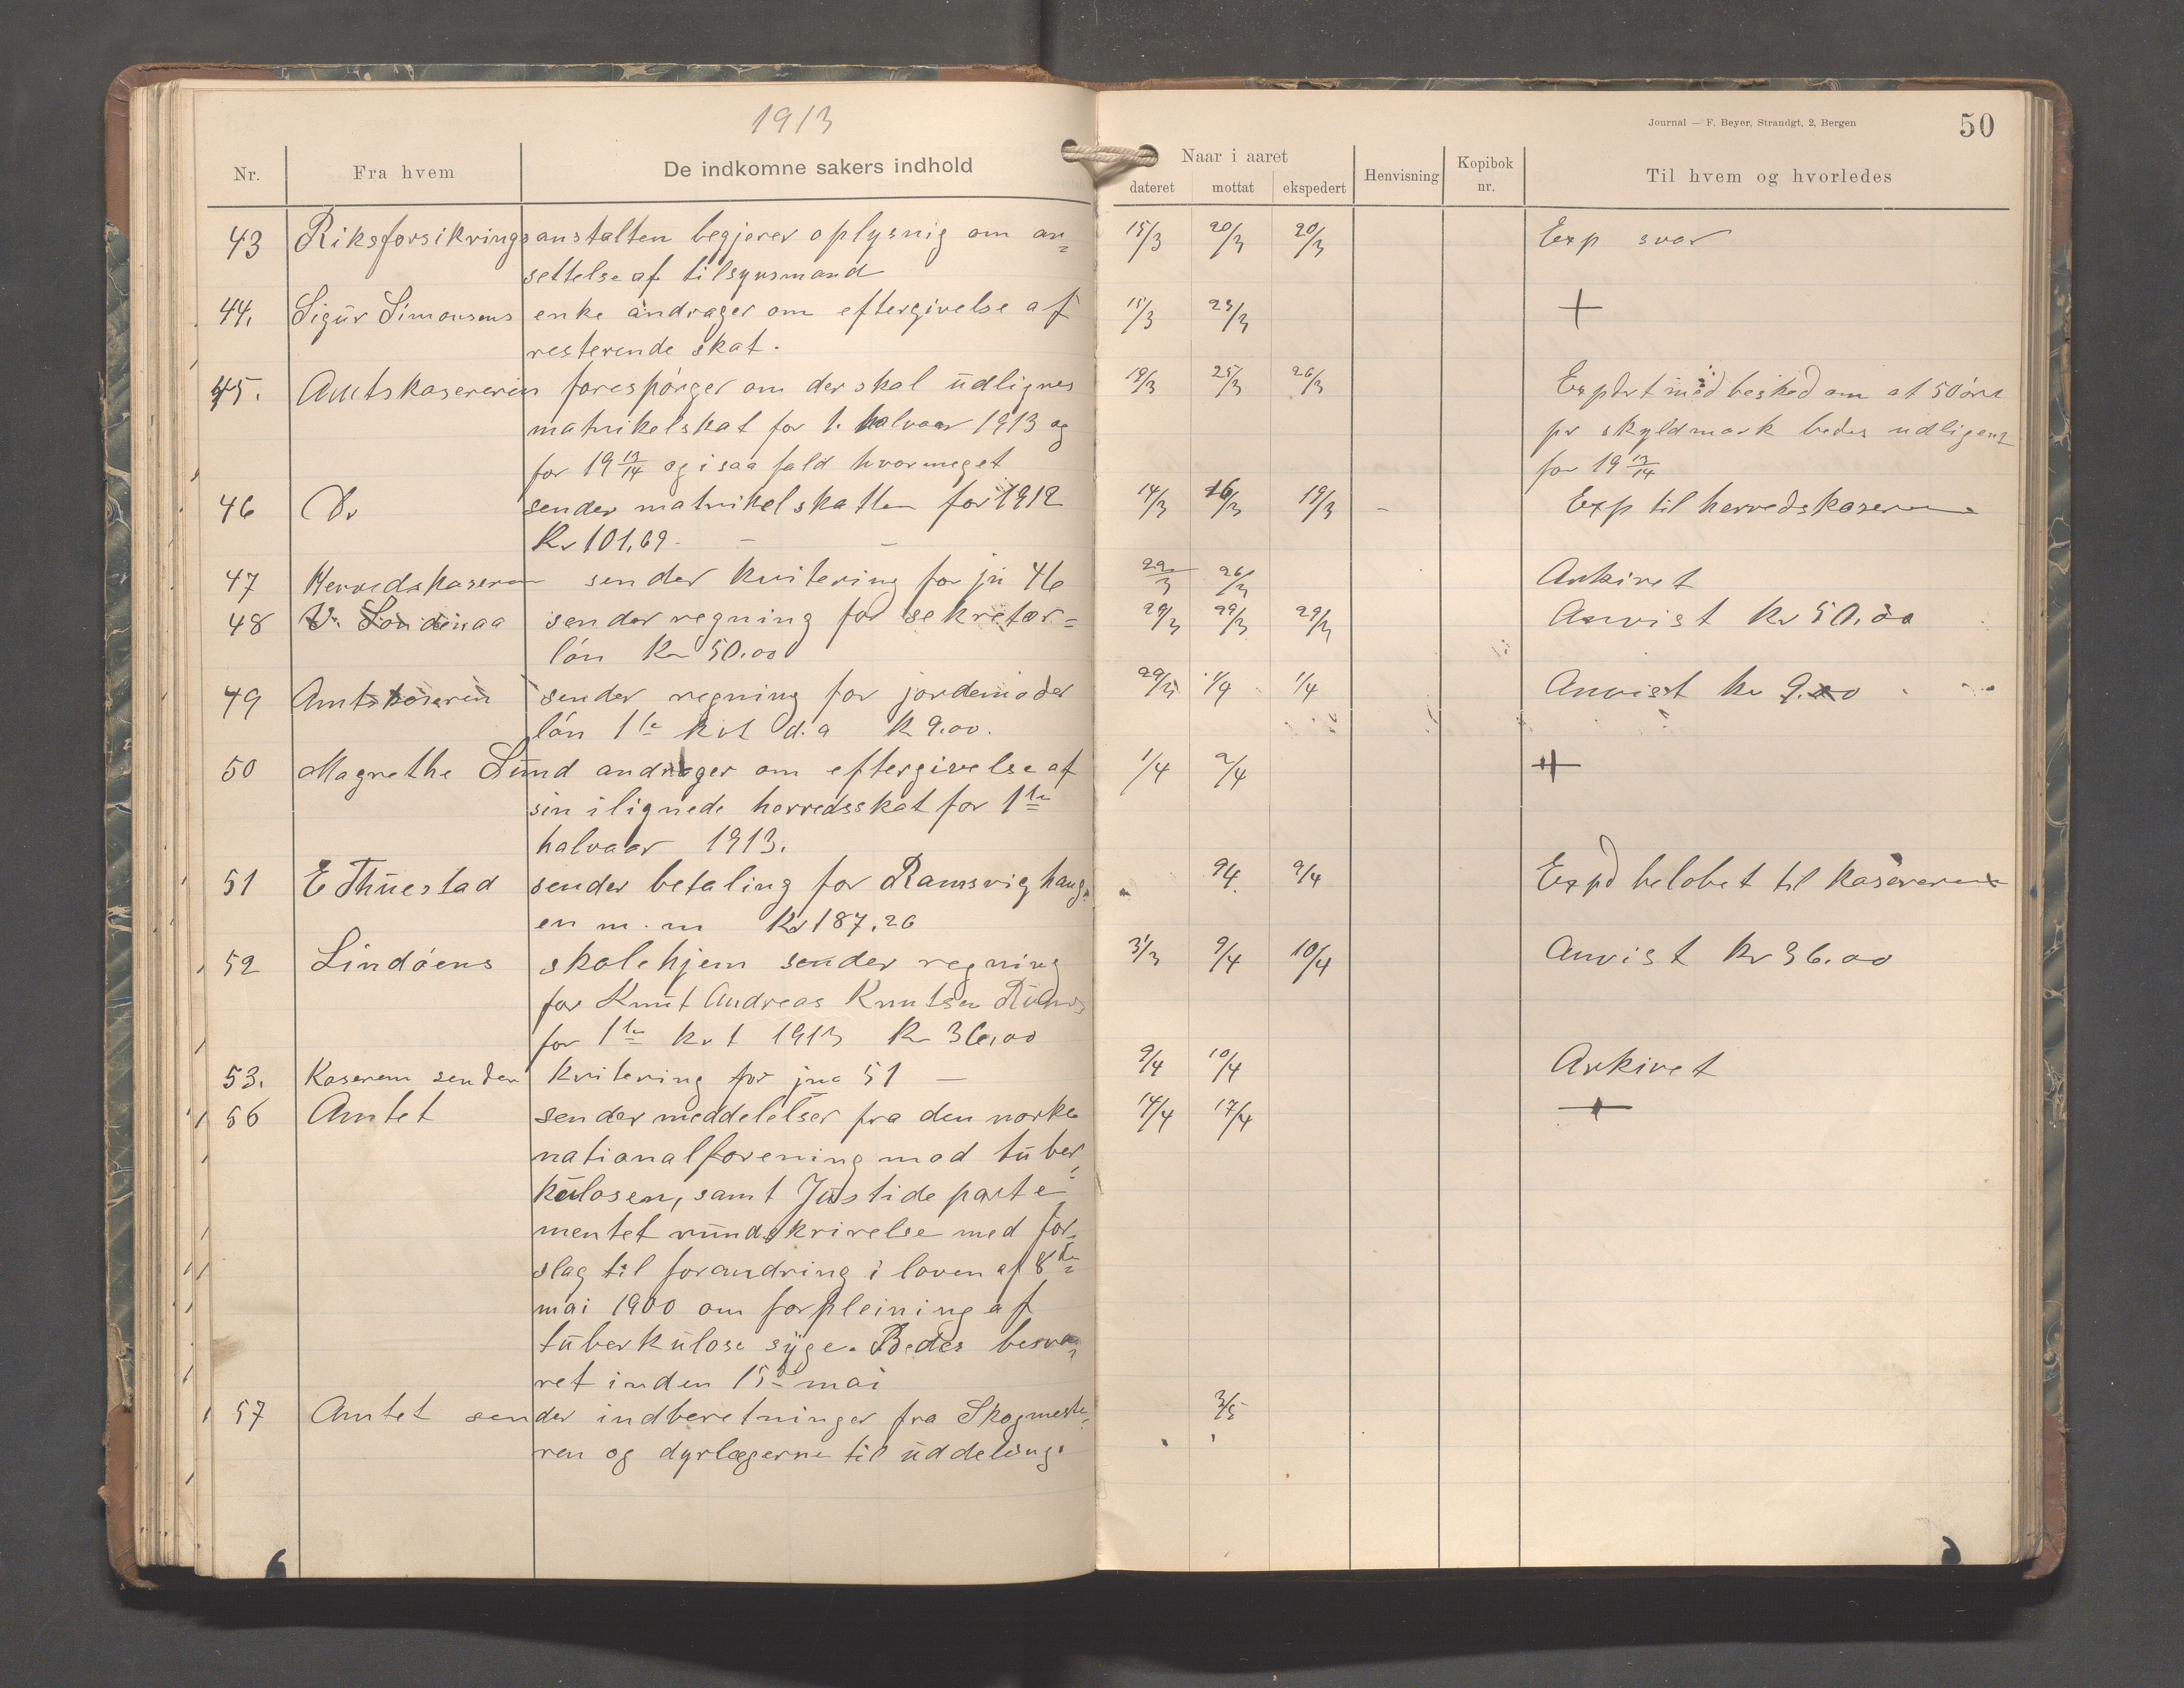 1913
Journal — F. Beyer, Strandgt. 2, Bergen
50
Nr. Fra hvem De indkomne sakers indhold Naar i aaret Henvisning Kopibok nr. Til hvem og hvorledes
dateret mottat ekspedert
43 Riksforsikringsanstalten begjerer oplysnig om an= 15/3 20/3 20/3 Exp svar
settelse af tilsynsmand
44. Sigur Simonsens enke andrager om eftergivelse af 15/3 25/3 +
resterende skat.
45. Amtskasereren forespørger om der skal udlignes 19/3 25/3 26/3 Expdrt med besked om at 50 øre
matrikelskat for 1. halvaar 1913 og pr skyldmark bedes udlignet
for 19 13/14 og i saa fald hvormeget for 19 13/14
46 Do sender matrikelskatten for 1912 14/3 16/3 19/3 - Exp til herredskasereren
Kr 101,69 - — —
47 Herredskasereren sender kvitering for jn 46 22/3 26/3 Arkivet
48 sender regning for sekretær= 29/3 29/3 29/3 Anvist kr 50.00
løn Kr 50.00
49 Amtskaseren sender regning for jordemoder 29/3 1/4 1/4 Anvist kr 9.00
løn 1te kvt d.a K 9.00.
50 Magrethe Lund andrager om eftergivelse af 1/4 2/4 +
sin ilignede herredsskat for 1te
halvaar 1913.
51 E Thuestad sender betaling for Ramsvighaug= 9/4 9/4 Expd beløbet til kasereren
en m. m Kr 187.26
52 Lindøens skolehjem sender regning 31/3 9/4 10/4 Anvist kr 36.00
for Knut Andreas Knutsen
for 1te kvt 1913 Kr 36,00
53. Kaseren sender kvitering for jno 51 — 9/4 10/4 Arkivet
56 Amtet sender meddelelser fra den norke 14/4 17/4 +
nationalforening mod tuber=
kulosen, samt Justideparte=
mentet rundskrivelse med for=
slag til forandring i loven af 8de
mai 1900 om forpleining af
tuberkulose syge. Bedes besva=
ret inden 15de mai
57 Amtet sender indberetninger fra Skogmeste= 3/5
ren og dyrlægerne til uddeling.